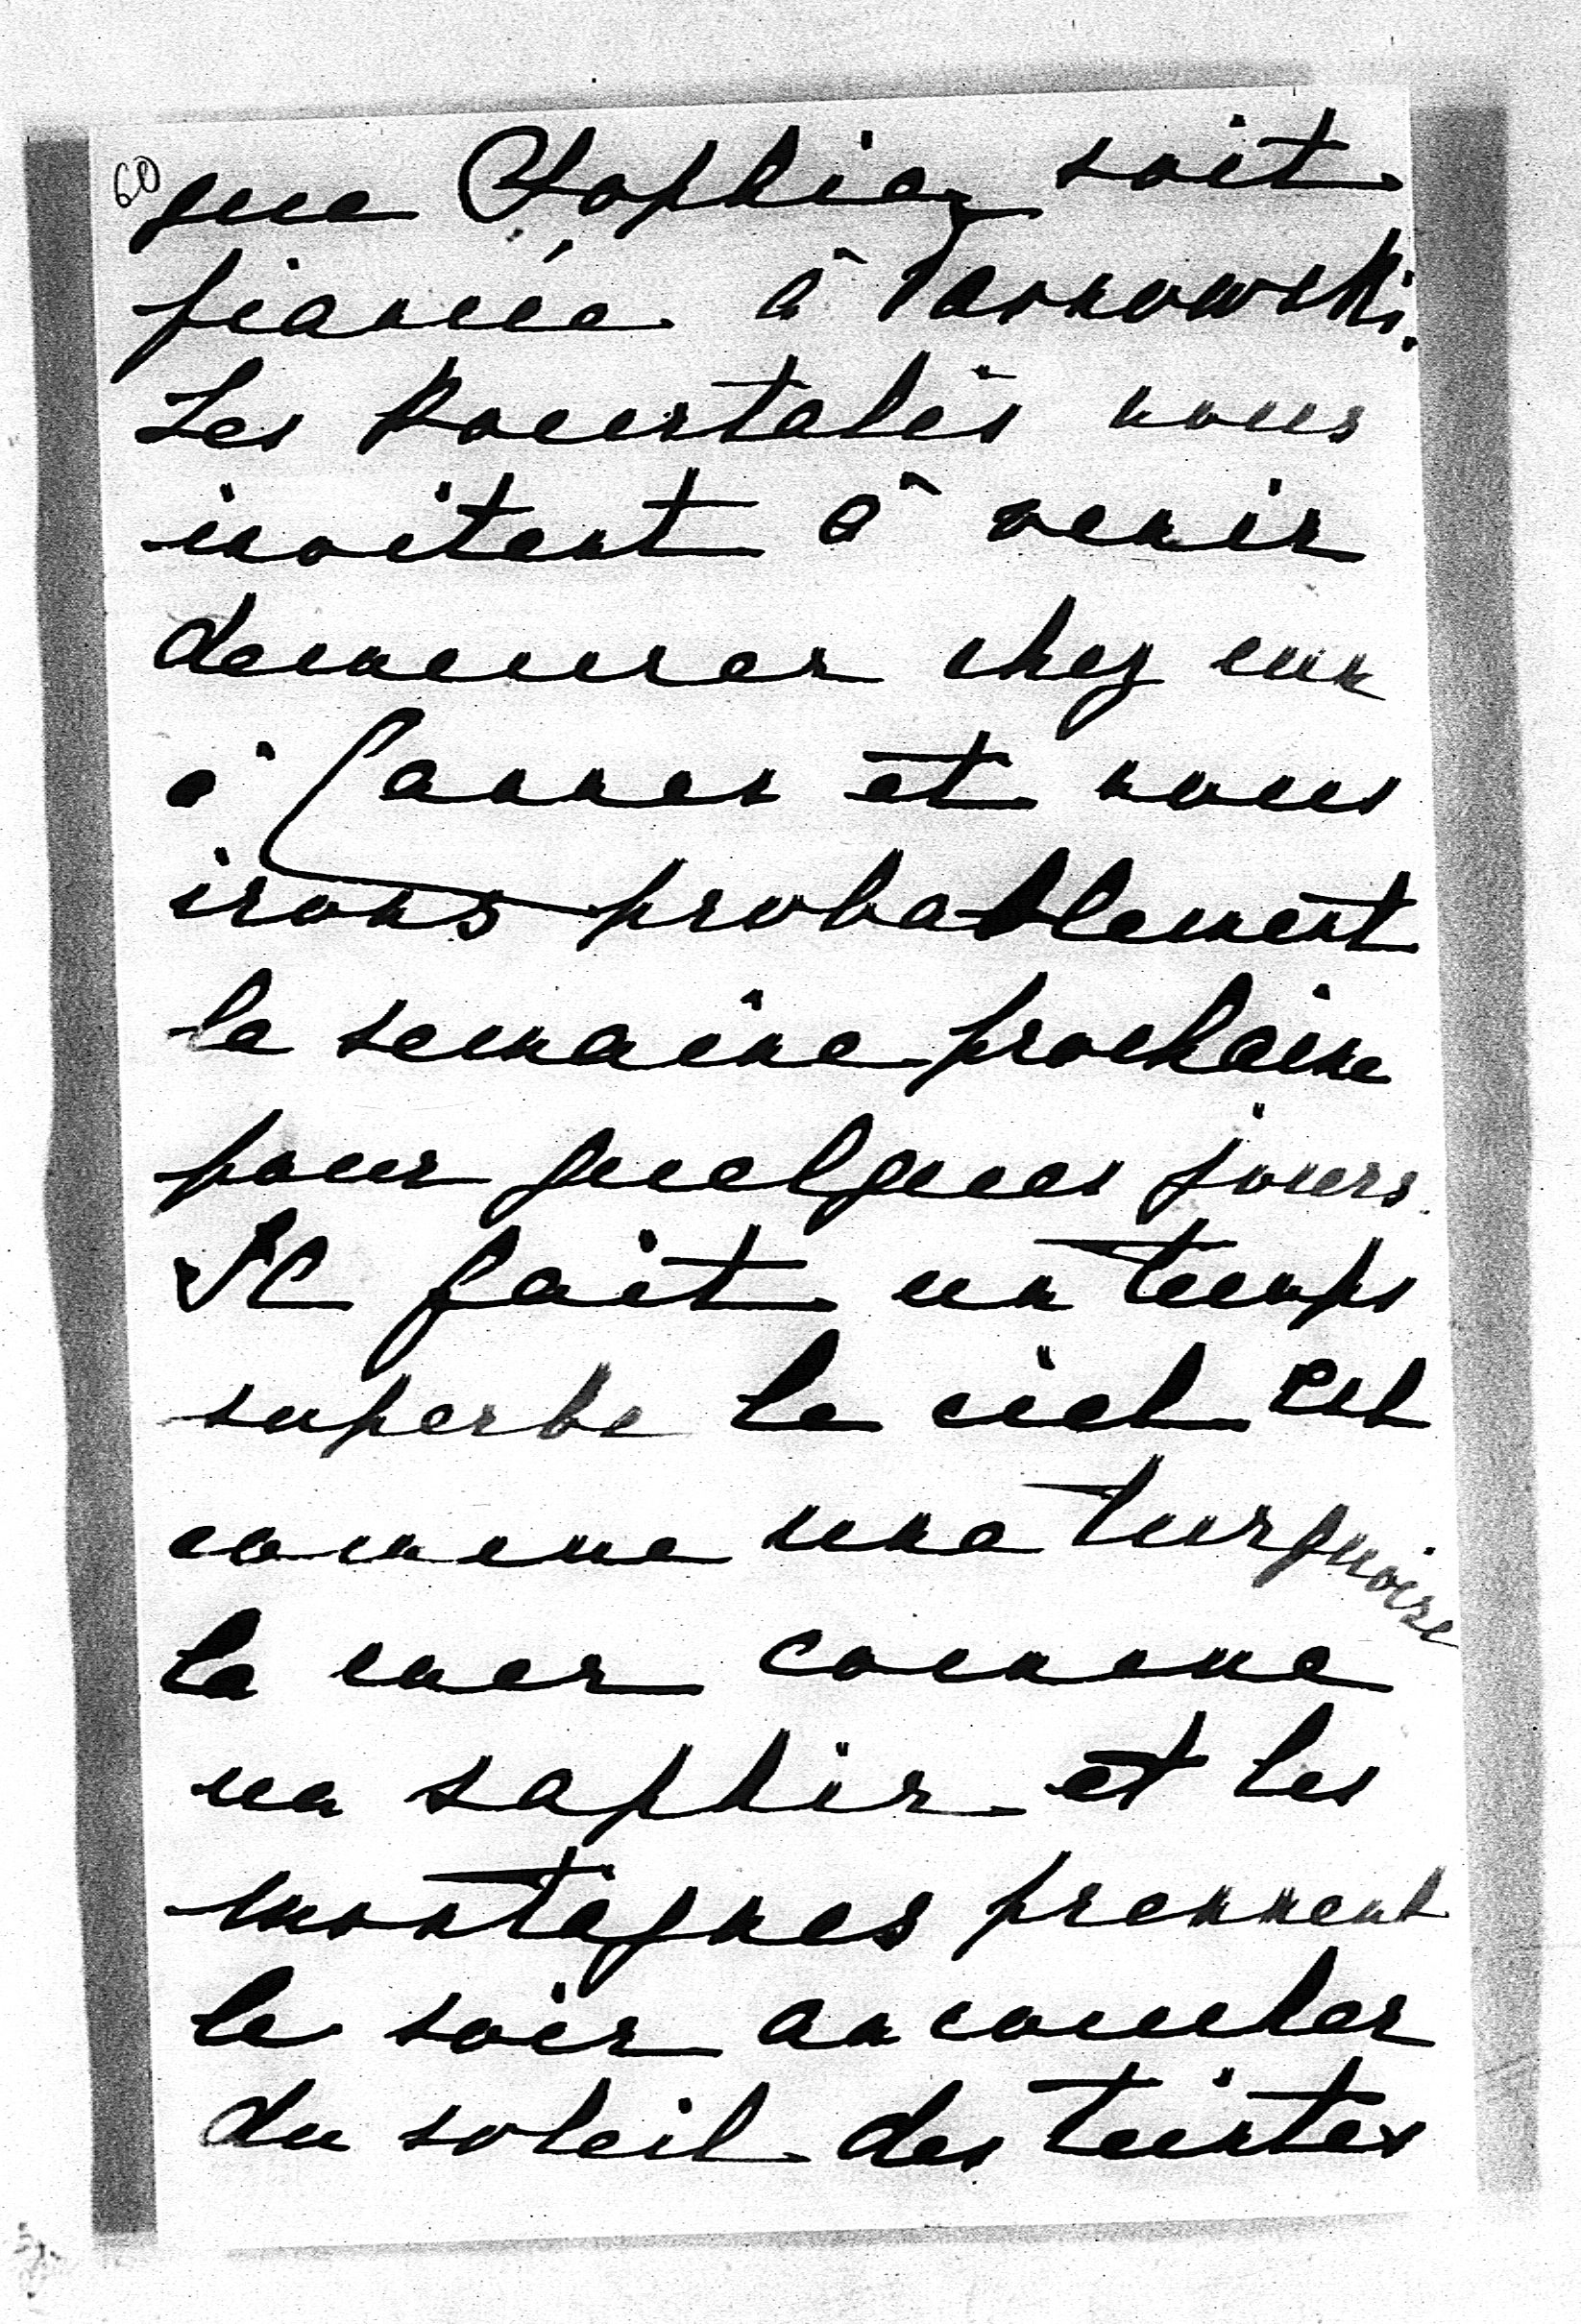 60
que Sophie soit
fiancée à Tarnowski.
Les Pourtalès nous
invitent à venir
demeurer chez eux
à Cannes et nous
irons probablement
la semaine prochaine
pour quelques jours.
Il fait un temps
superbe le ciel est
comme une turquoise
la mer comme
un saphir et les
montagnes prennent
le soir au coucher
du soleil des teintes